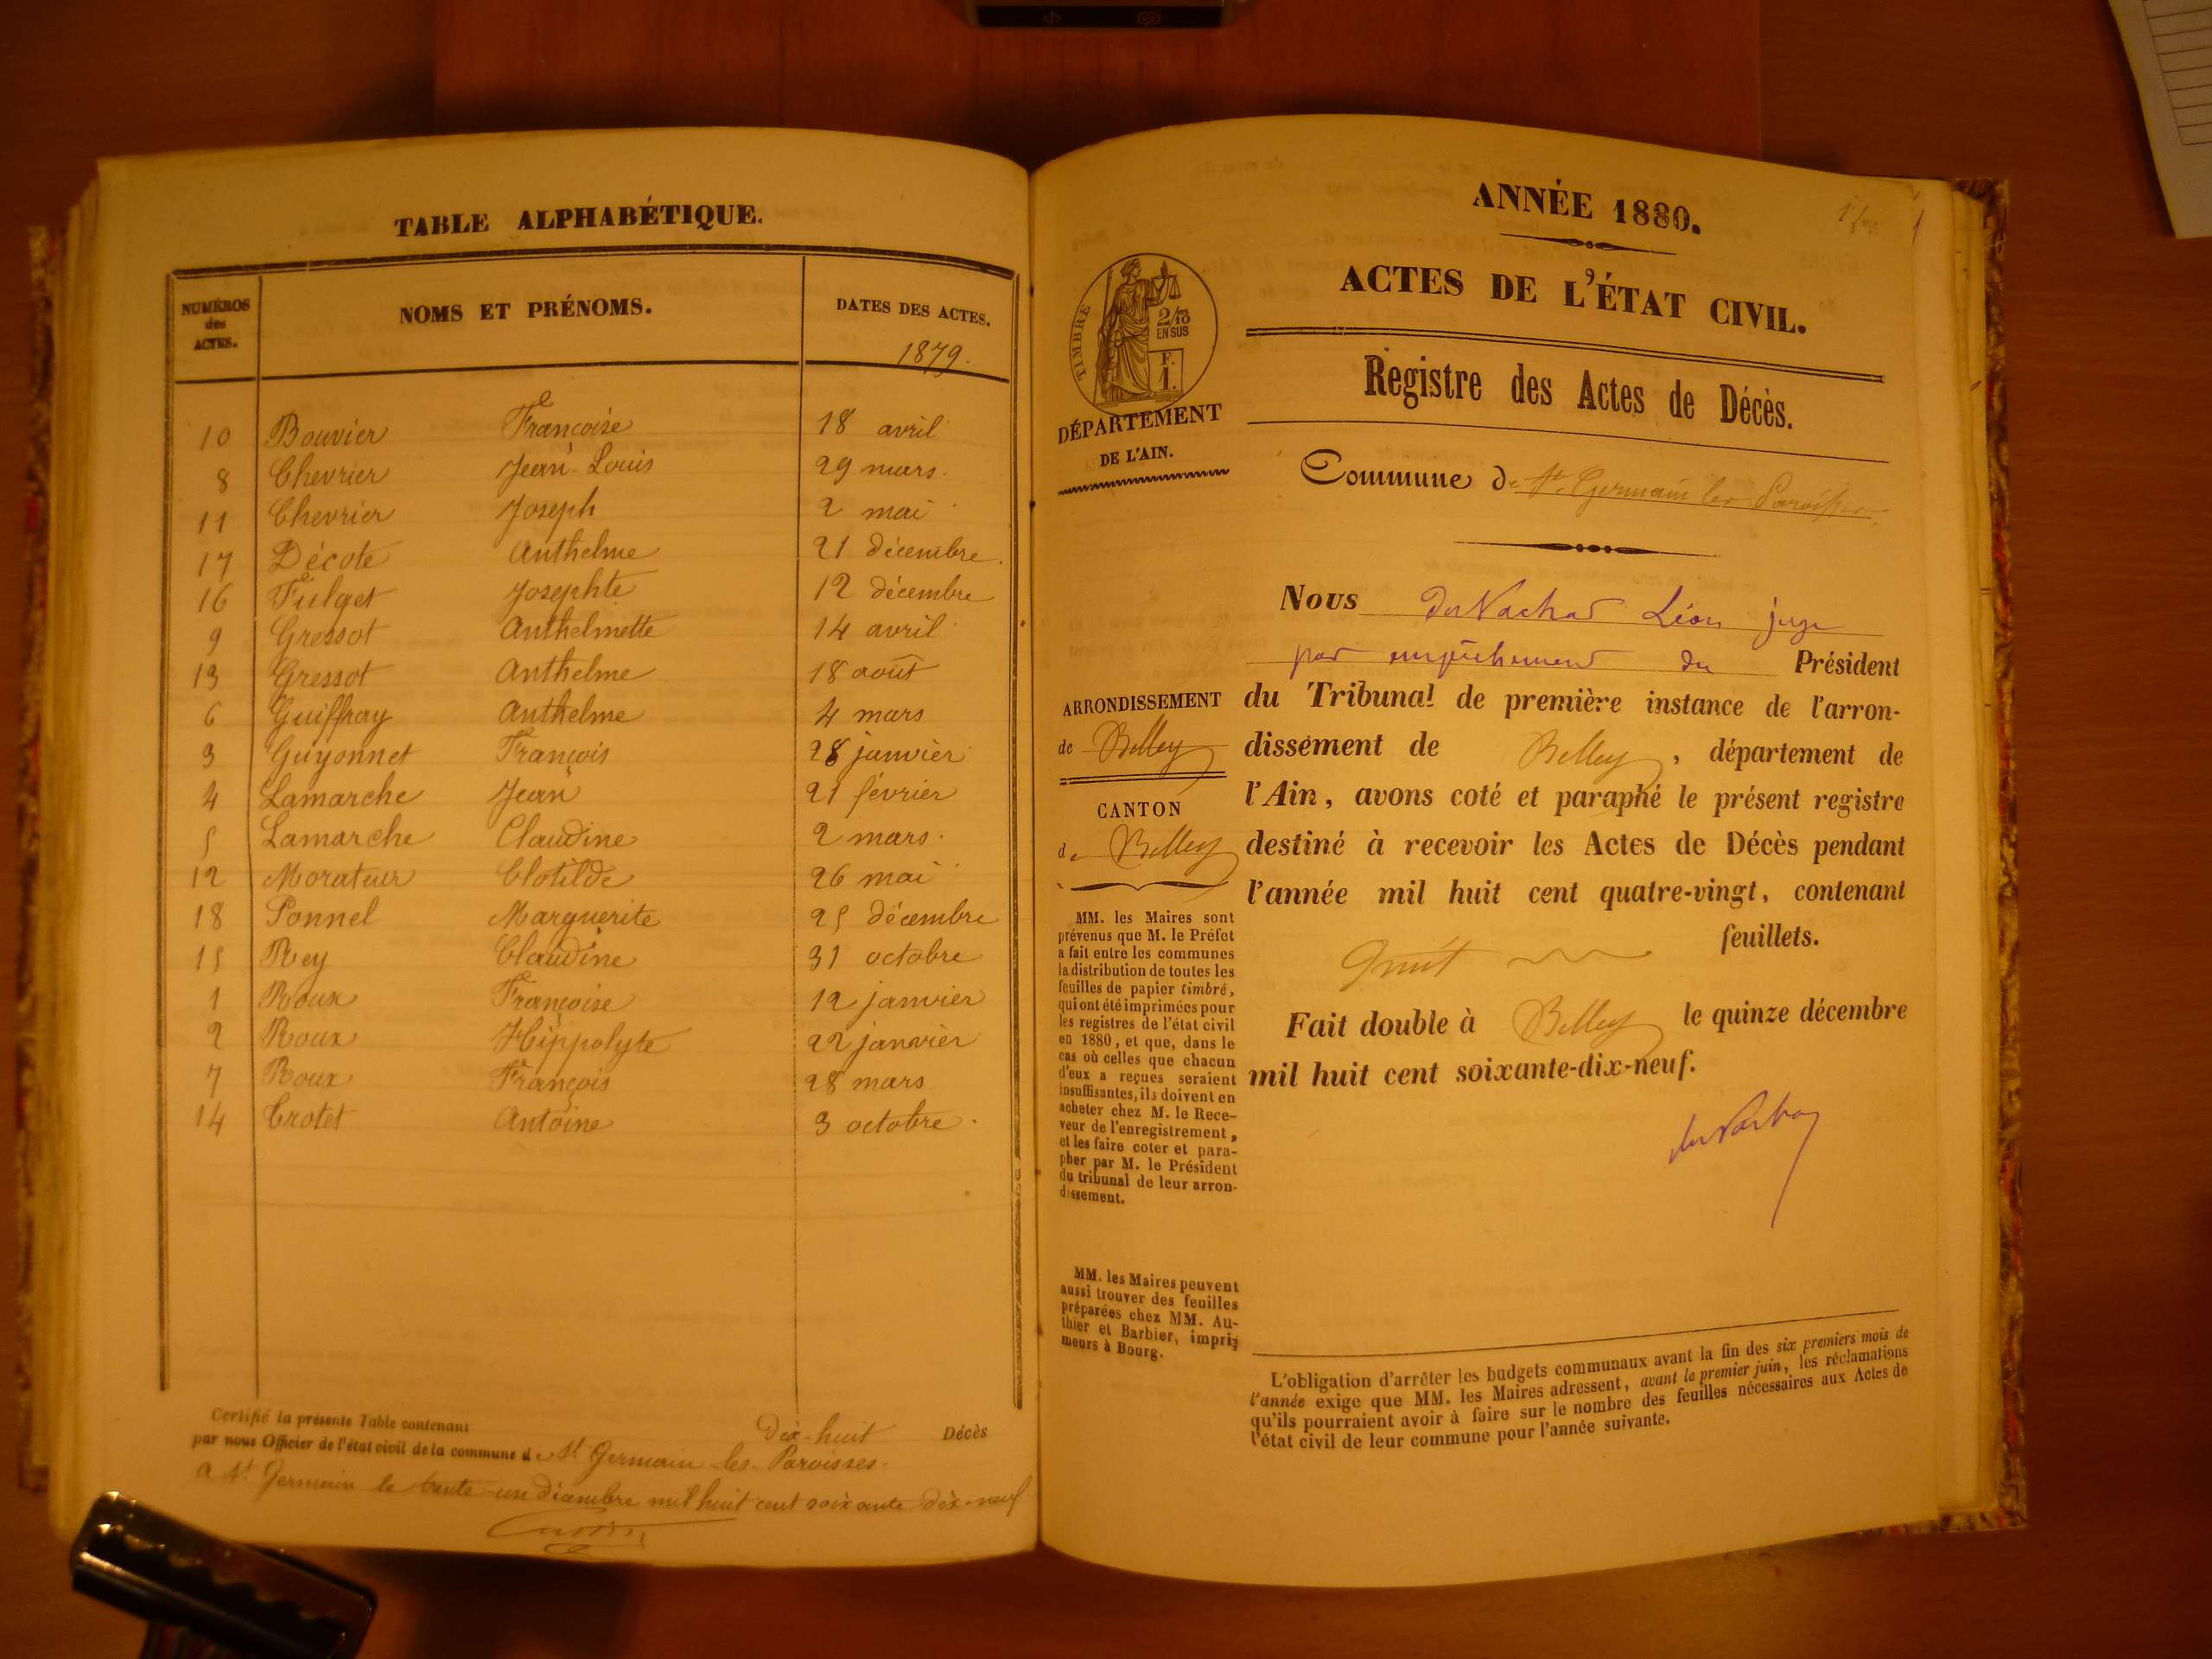 TABLE ALPHABÉTIQUE.
NUMÉROS des ACTES. NOMS ET PRÉNOMS. DATES DES ACTES.
1879.
10 Bouvier Françoise 18 avril
8 Chevrier Jean-Louis 29 mars.
11 Chevrier Joseph 2 mai
17 Décote Anthelme 21 décembre.
16 Fulget Josephte 12 décembre
9 Gressot Anthelmette 14 avril
13 Gressot Anthelme 18 août
6 Guiffray Anthelme 4 mars
3 Guyonnet François 28 janvier
4 Lamarche Jean 21 février
5 Lamarche Claudine 2 mars.
12 Morateur Clotilde 26 mai
18 Ponnel Marguerite 25 décembre
15 Rey Claudine 31 octobre
1 Roux Françoise 12 janvier
2 Roux Hippolyte 22 janvier
7 Roux François 28 mars
14 Trotet Antoine 3 octobre.
Certifié la présente Table contenant Dix-huit Décès
par nous Officier de l'état civil de la commune de St Germain-les-Paroisses.
A St Germain le trente-un décembre mil huit cent soixante dix-neuf
ANNÉE 1880.
ACTES DE L'ÉTAT CIVIL.
Registre des Actes de Décès.
TIMBRE
2/10
EN SUS
F.
1.
DÉPARTEMENT
DE L'AIN.
Commune de St Germain les Paroisses
ARRONDISSEMENT
de Belley
CANTON
de Belley
MM. les Maires sont
prévenus que M. le Préfet
a fait entre les communes
la distribution de toutes les
feuilles de papier timbré,
qui ont été imprimées pour
les registres de l'état civil
en 1880, et que, dans le
cas où celles que chacun
d'eux a reçues seraient
insuffisantes, ils doivent en
acheter chez M. le Rece-
veur de l'enregistrement,
et les faire coter et para-
pher par M. le Président
du tribunal de leur arron-
dissement.
MM. les Maires peuvent
aussi trouver des feuilles
préparées chez MM. Au-
thier et Barbier, impri-
meurs à Bourg.
Nous Léon juge
par empêchement du Président
du Tribunal de première instance de l'arron-
dissement de Belley, département de
l'Ain, avons coté et paraphé le présent registre
destiné à recevoir les Actes de Décès pendant
l'année mil huit cent quatre-vingt, contenant
feuillets.
Fait double à Belley le quinze décembre
mil huit cent soixante-dix-neuf.
L'obligation d'arrêter les budgets communaux avant la fin des six premiers mois de
l'année exige que MM. les Maires adressent, avant le premier juin, les réclamations
qu'ils pourraient avoir à faire sur le nombre des feuilles nécessaires aux Actes de
l'état civil de leur commune pour l'année suivante.